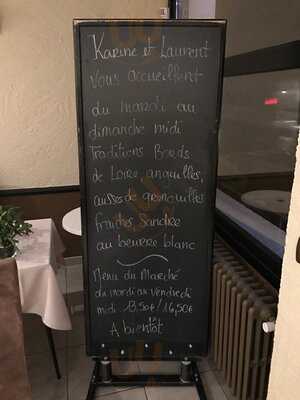 Karine et Laurent
vous accueillent
du mardi au
dimanche midi
Traditions Bords
de Loire, anguilles,
cuisses de grenouilles
fraîches, sandre
au beurre blanc
Menu du Marché
du mardi au vendredi
midi 13,50€/16,50€
A bientôt